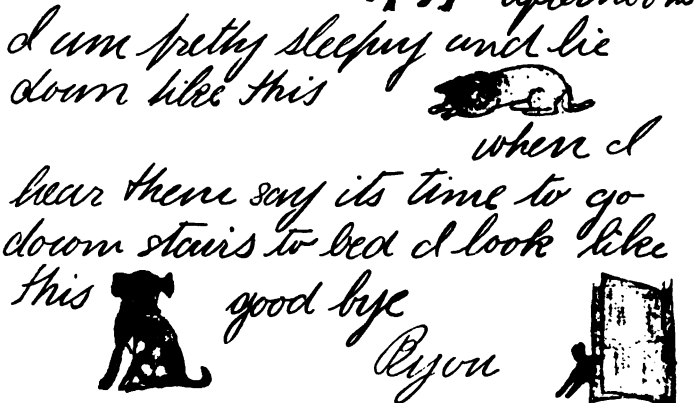 afternoons
I am pretty sleepy and lie
down like this
when I
hear them say its time to go
down stairs to bed I look like
this good bye
Ryou